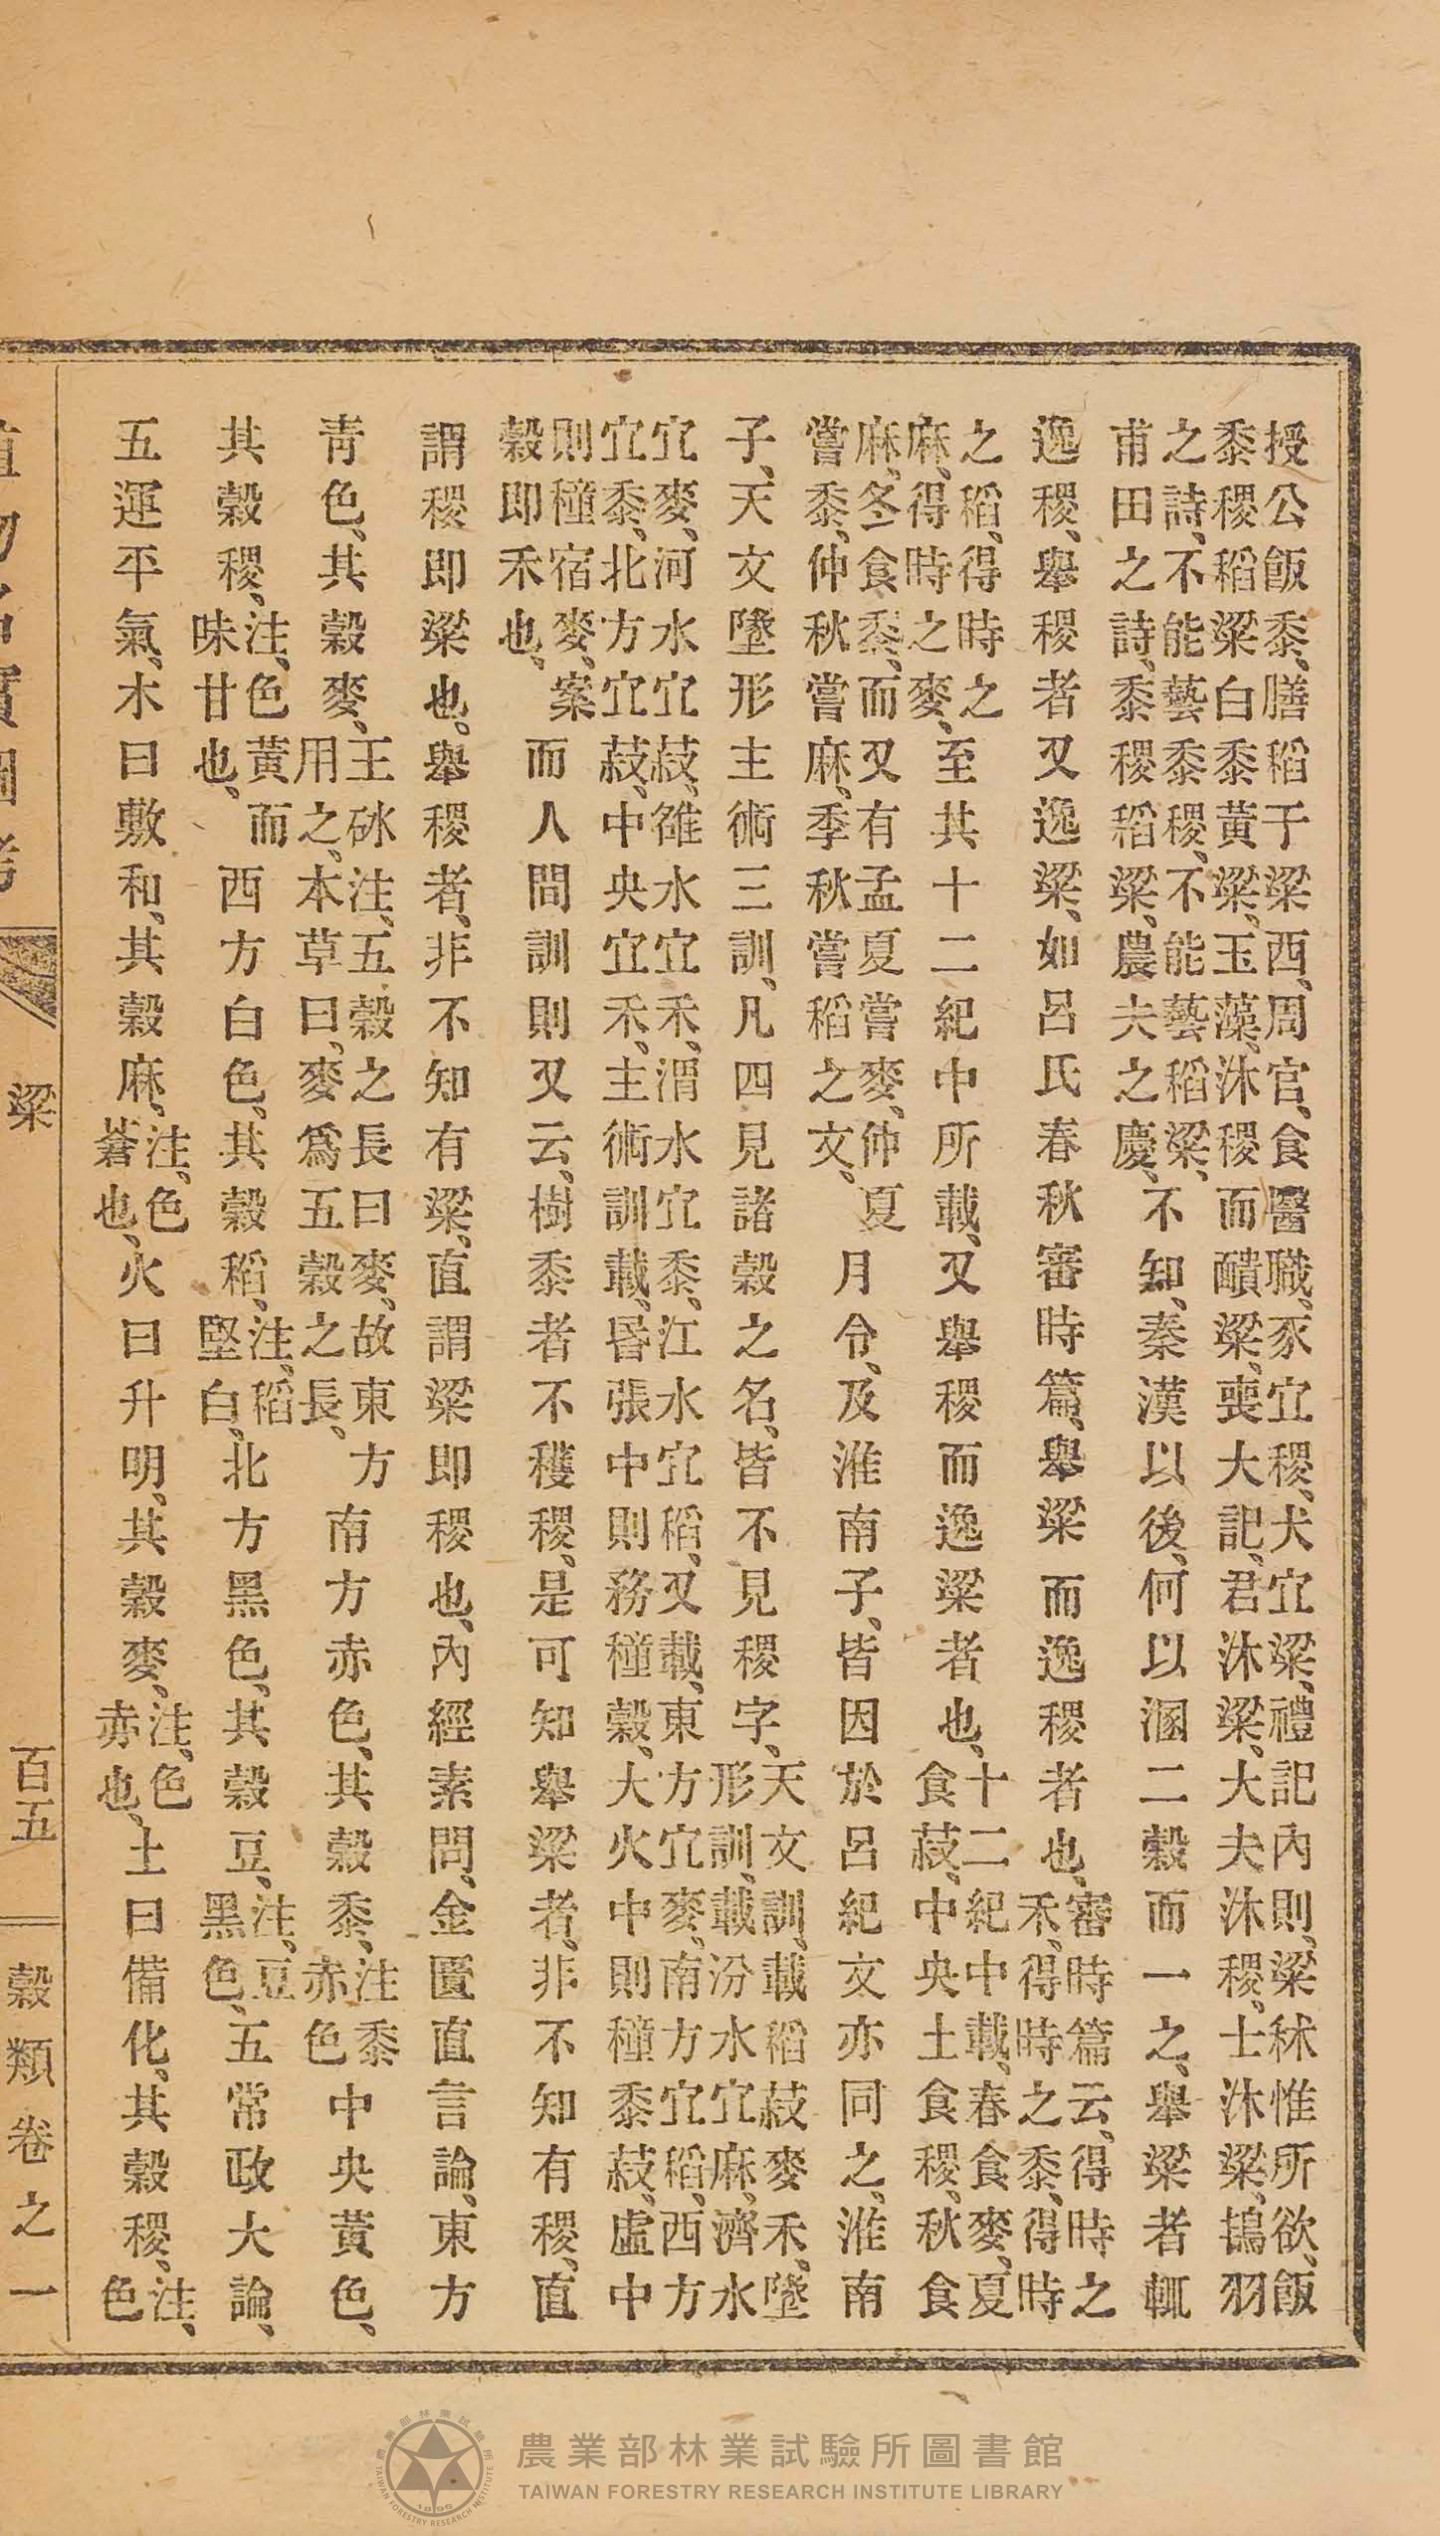 授公飯黍、膳稻于粱西、周官、食醫職、豕宜稷、犬宜粱、禮記內則、粱秫惟所欲、飯
黍稷稻粱白黍黃粱、玉藻、沐稷而靧粱、喪大記、君沐粱、大夫沐稷、士沐粱、鴇羽
之詩、不能藝黍稷、不能藝稻粱、甫田之詩、黍稷稻粱、農夫之慶、不知、秦漢以後、何以溷二穀而一之、舉粱者輒
逸稷、舉稷者又逸粱、如呂氏春秋審時篇、舉粱而逸稷者也、審時篇云、得時之禾、得時之黍、得時
之稻、得時之麻、得時之麥、至其十二紀中所載、又舉稷而逸粱者也、十二紀中載、春食麥、夏食菽、中央土食稷、秋食
麻、冬食黍、而又有孟夏嘗麥、仲夏嘗黍、仲秋嘗麻、季秋嘗稻之文、月令、及淮南子、皆因於呂紀文亦同之、淮南
子、天文墬形主術三訓、凡四見諸穀之名、皆不見稷字、天文訓、載稻菽麥禾、墬形訓、載汾水宜麻、濟水
宜麥、河水宜菽、雒水宜禾、渭水宜黍、江水宜稻、又載、東方宜麥、南方宜稻、西方
宜黍、北方宜菽、中央宜禾、主術訓載、昏張中則務種穀、大火中則種黍菽、虛中
則種宿麥、案穀即禾也、而人間訓則又云、樹黍者不穫稷、是可知舉粱者、非不知有稷、直
謂稷即粱也。舉稷者、非不知有粱、直謂粱即稷也、內經素問、金匱直言論、東方
青色、其穀麥、王砅注、五穀之長曰麥、故東方用之、本草曰、麥為五穀之長、南方赤色、其穀黍、注黍赤色中央黃色、
其穀稷、注、色黃而味甘也、西方白色、其穀稻、注、稻堅白、北方黑色、其穀豆、注、豆黑色、五常政大論、
五運平氣、木曰敷和、其穀麻、注、色蒼也、火曰升明、其穀麥、注、色赤也、土曰備化、其穀稷、注、色
粱
百五
穀類卷之一
農業部林業試驗所圖書館
TAIWAN FORESTRY RESEARCH INSTITUTE LIBRARY